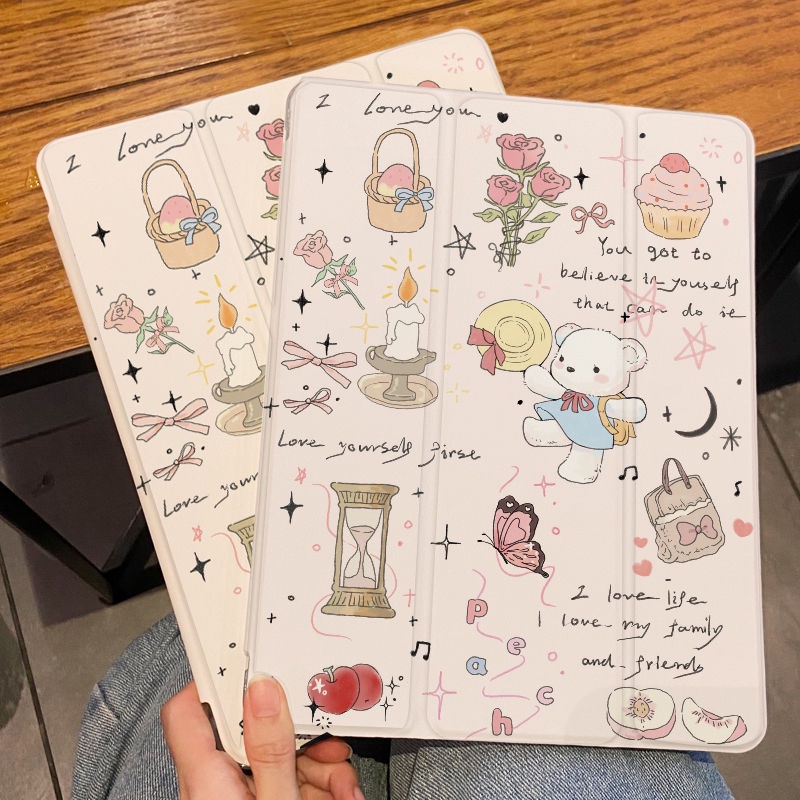 I love you
I love you
You got to
believe in youself
that can do it
Love yourself first
Love your
I love life
I love my family
and friends
p
e
a
c
h